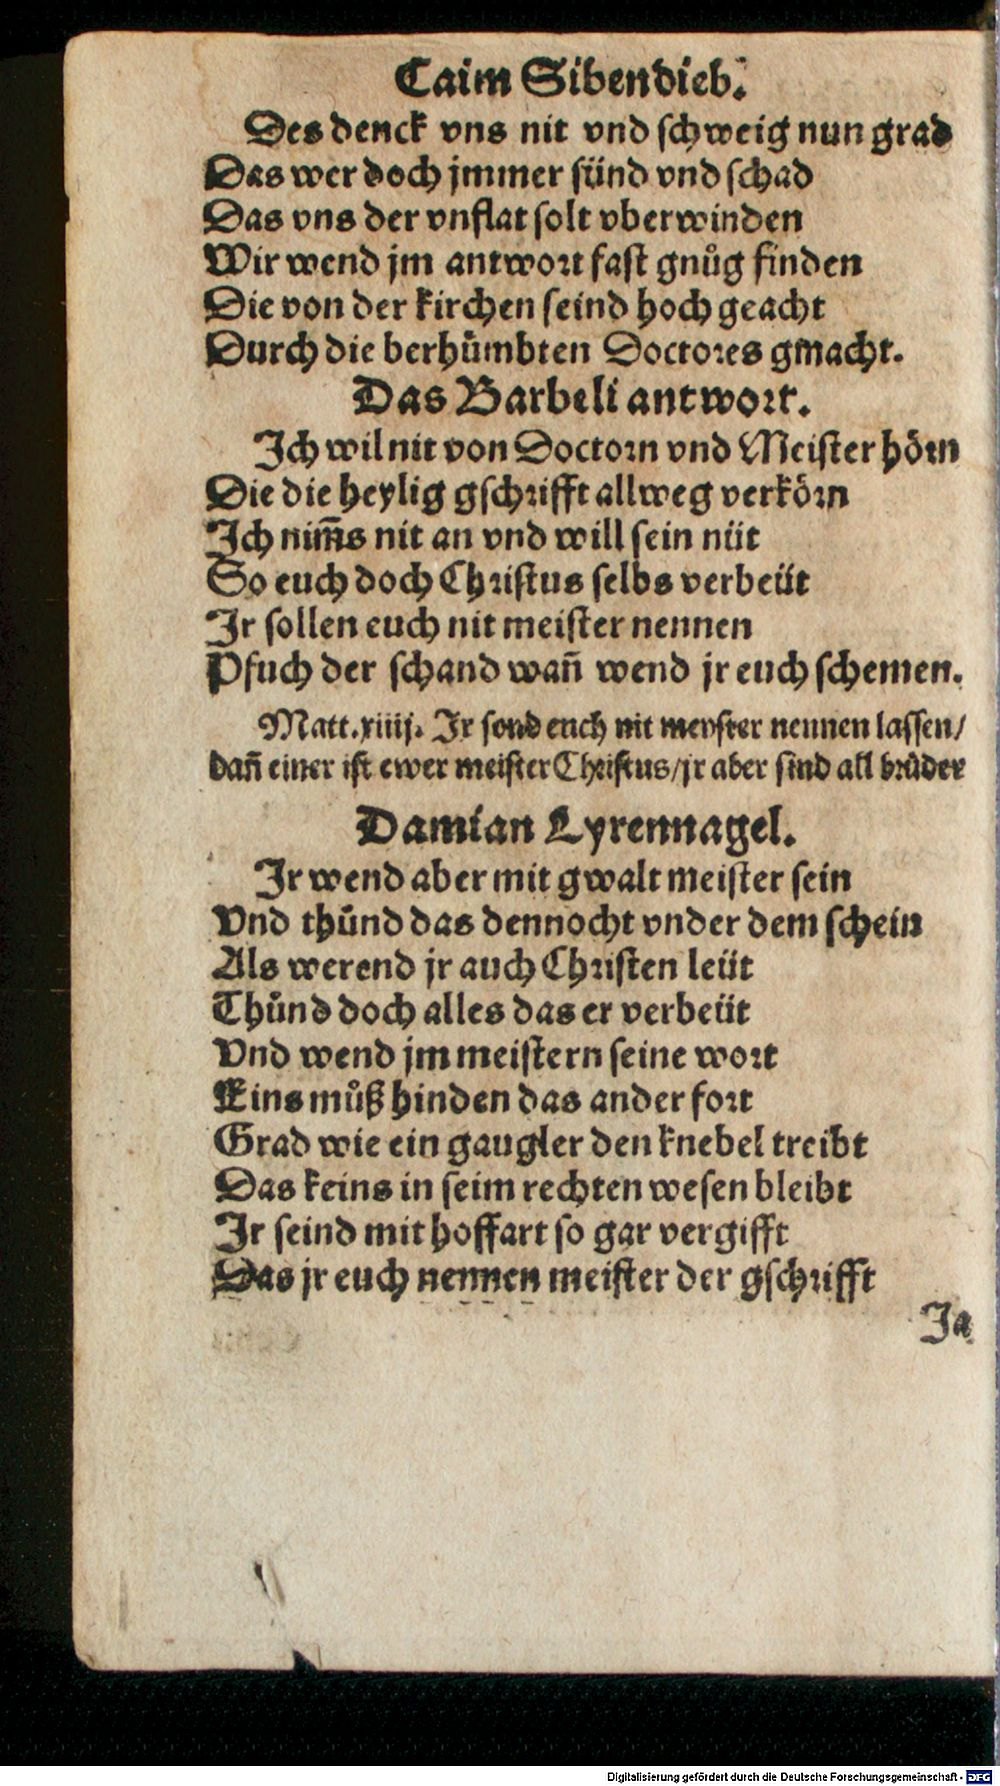 Caim Sibendieb.
Des denck vns nit vnd schweig nun grad
Das wer doch jmmer sünd vnd schad
Das vns der vnflat solt vberwinden
Wir wend jm antwort fast gnůg finden
Die von der kirchen seind hoch geacht
Durch die berhůmbten Doctores gmacht.
Das Barbeli antwort.
Ich wil nit von Doctorn vnd Meister hörn
Die die heylig gschrifft allweg verkörn
Ich nim̃s nit an vnd will sein nüt
So euch doch Christus selbs verbeüt
Ir sollen euch nit meister nennen
Pfuch der schand wañ wend jr euch schemen.
Matt.xiiij. Ir sond euch nit meyster nennen lassen/
dañ einer ist ewer meister Christus/jr aber sind all brůder
Damian Lyrennagel.
Ir wend aber mit gwalt meister sein
Vnd thůnd das dennocht vnder dem schein
Als werend jr auch Christen leüt
Thůnd doch alles das er verbeüt
Vnd wend jm meistern seine wort
Eins můß hinden das ander fort
Grad wie ein gaugler den knebel treibt
Das keins in seim rechten wesen bleibt
Ir seind mit hoffart so gar vergifft
Das jr euch nennen meister der gschrifft
Ja
Digitalisierung gefördert durch die Deutsche Forschungsgemeinschaft - DFG